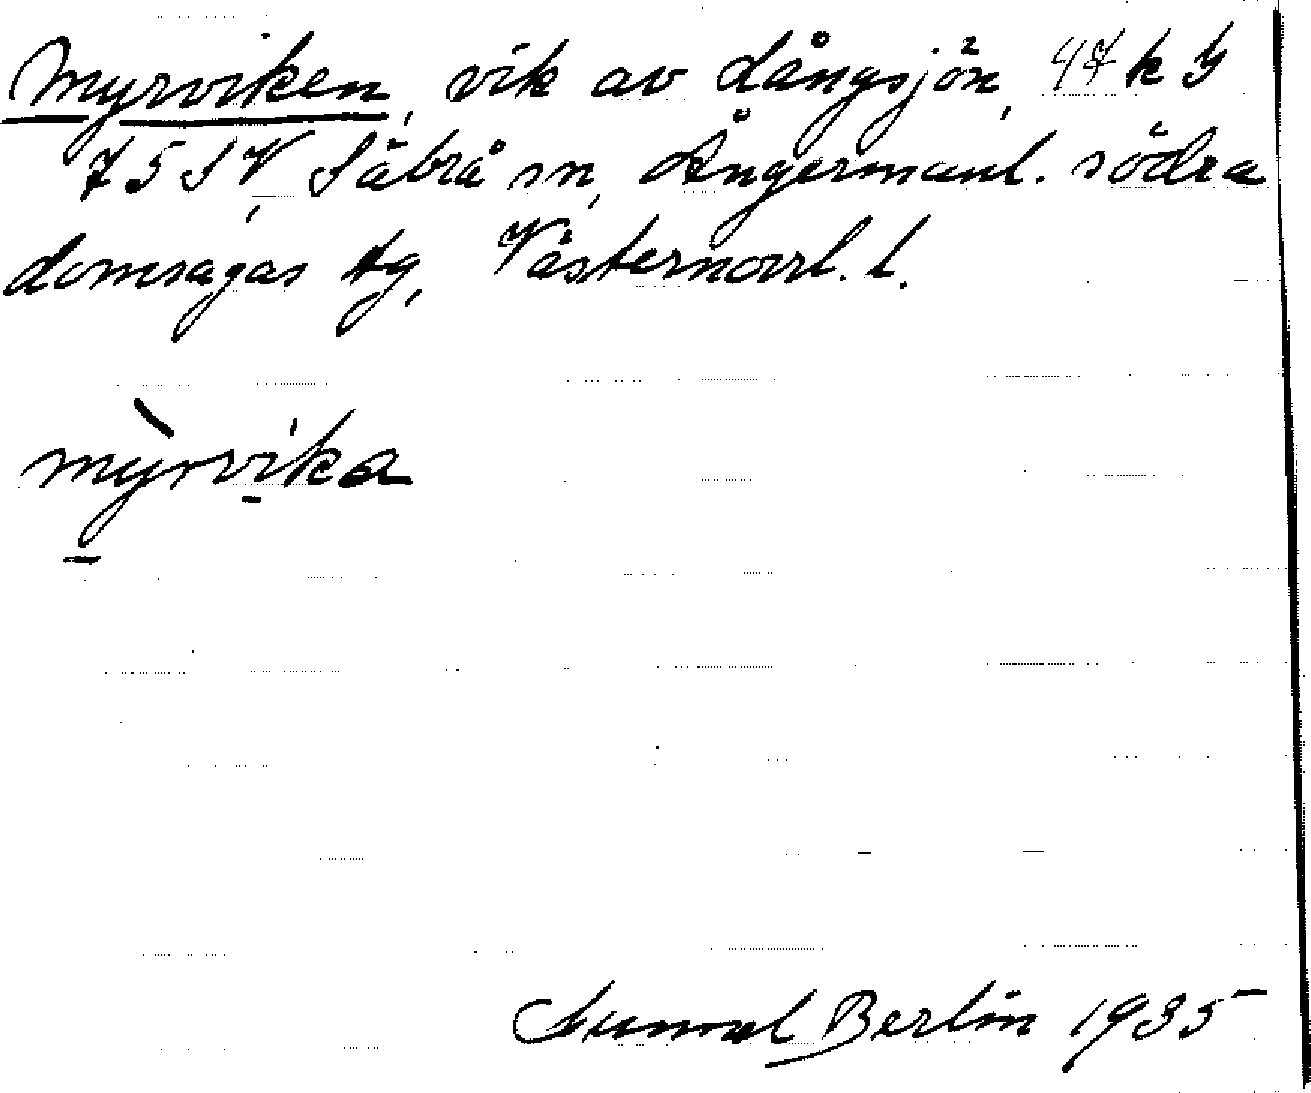 Myrviken, vik av Långsjön, 47 k G
75 SV, Säbrå sn, Ångermanl. södra
domsagas tg, Västernorrl. l.
mỳrvika
Berlin 1935